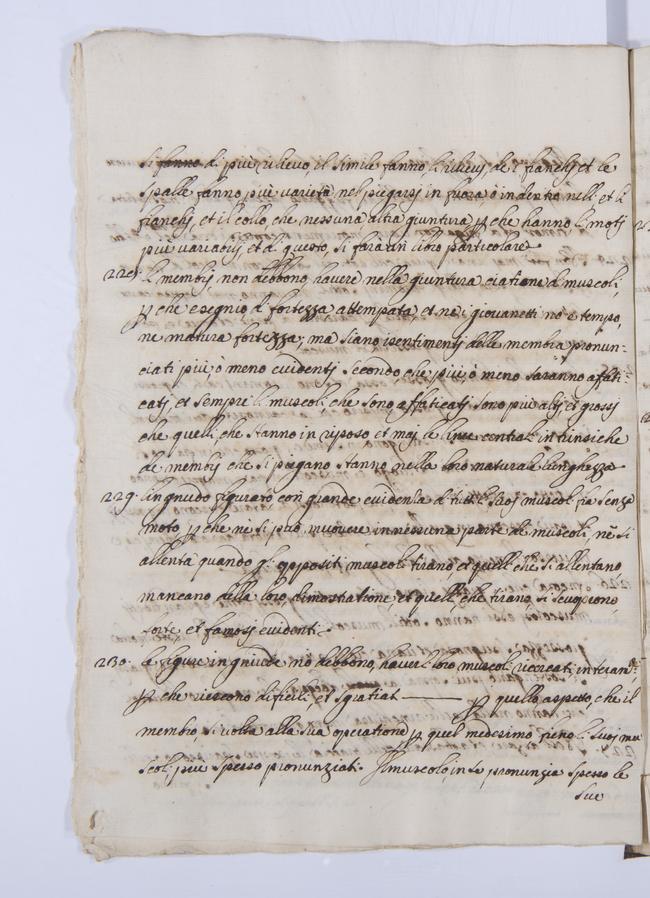 si fanno di più rilievo, il simile fanno li rilievij de i fianchij et le
spalle fanno più varietà nel piegarsi in fuora ò in dentro nelli et li
fianchij, et il collo, che nessuna altra giuntura p che hanno li motij
più variabilij, et di questo, si farà un libro particolare
228. li membrij non debbono, havere nella giuntura di muscoli,
p che è segnio di fortezza attempata, et nei i giovanetti nō è tempo,
ne matura fortezza; ma siano i sentimentij delle membra pronun-
ciati più ò meno evidentij secondo, che più ò meno saranno affati-
catij, et sempre li muscoli, che sono affaticatij sono più altij et grossij
che quelli, che stanno in riposo et maj le linee centrali intrinsiche
de membrij che si piegano stanno nella loro naturale lunghezza
229. Un gnudo figurato, con grande evidentia di tutti li suoj muscoli fia senza
moto, p che nō si può muovere in nessuna parte de muscoli, nē si
allenta quando gli oppositi muscoli tirano, et quelli che si allentano
mancano della loro dimostratione, et quelli, che tirano, si scuoprono
forte et famosij evidenti.
230. le figure ingniude nō debbono, haver li loro muscoli ricercati
p che riescono dificili, et sgratiati ——— p quello aspetto, che il
membro si volta alla sua operatione p quel medesimo sieno li suoj mu
scoli più spesso pronunziati. Il muscolo, in se pronunzia spesso le
sue